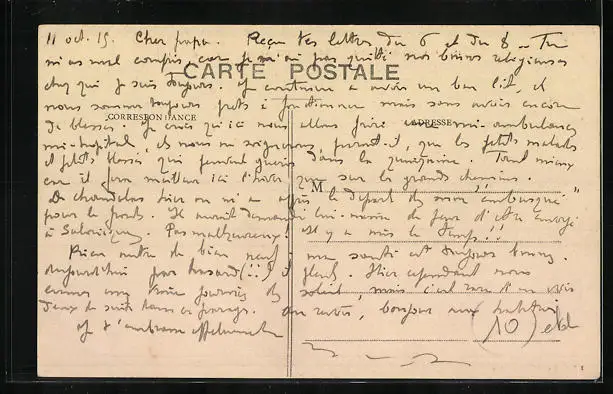 11 oct. 15. Cher papa. Reçu tes lettres du 6 et du 8. Tu
m'as mal compris, car je n'ai pas quitté nos bonnes religieuses
CARTE POSTALE
chez qui je suis toujours. Je continue à avoir un bon lit, et
nous sommes toujours prêts à fonctionner mais sans avoir encore
CORRESPONDANCE
ADRESSE
de blessés. Je crois qu'ici nous allons faire mi-ambulance
mi-hôpital, et nous ne soignerons, paraît-il, que les petits malades
et petits blessés qui peuvent guérir dans la quinzaine. Tant mieux
car il fera meilleur ici l'hiver que sur les grands chemins.
M
hier on m'a appris le départ de mon "embusqué"
pour le front. Il avait demandé lui-même de peur d'être envoyé
à Salonique. Pas malheureux! Il y a mis le temps!!
Rien autre de bien neuf. ma santé est toujours bonne.
Aujourd'hui par hasard (!!) il pleut. Hier cependant nous
eûmes une journée de soleil, mais c'est rare d'en voir
deux de suite dans ce pays. Au revoir, bonjour aux
Je t'embrasse affectueusement
(10)